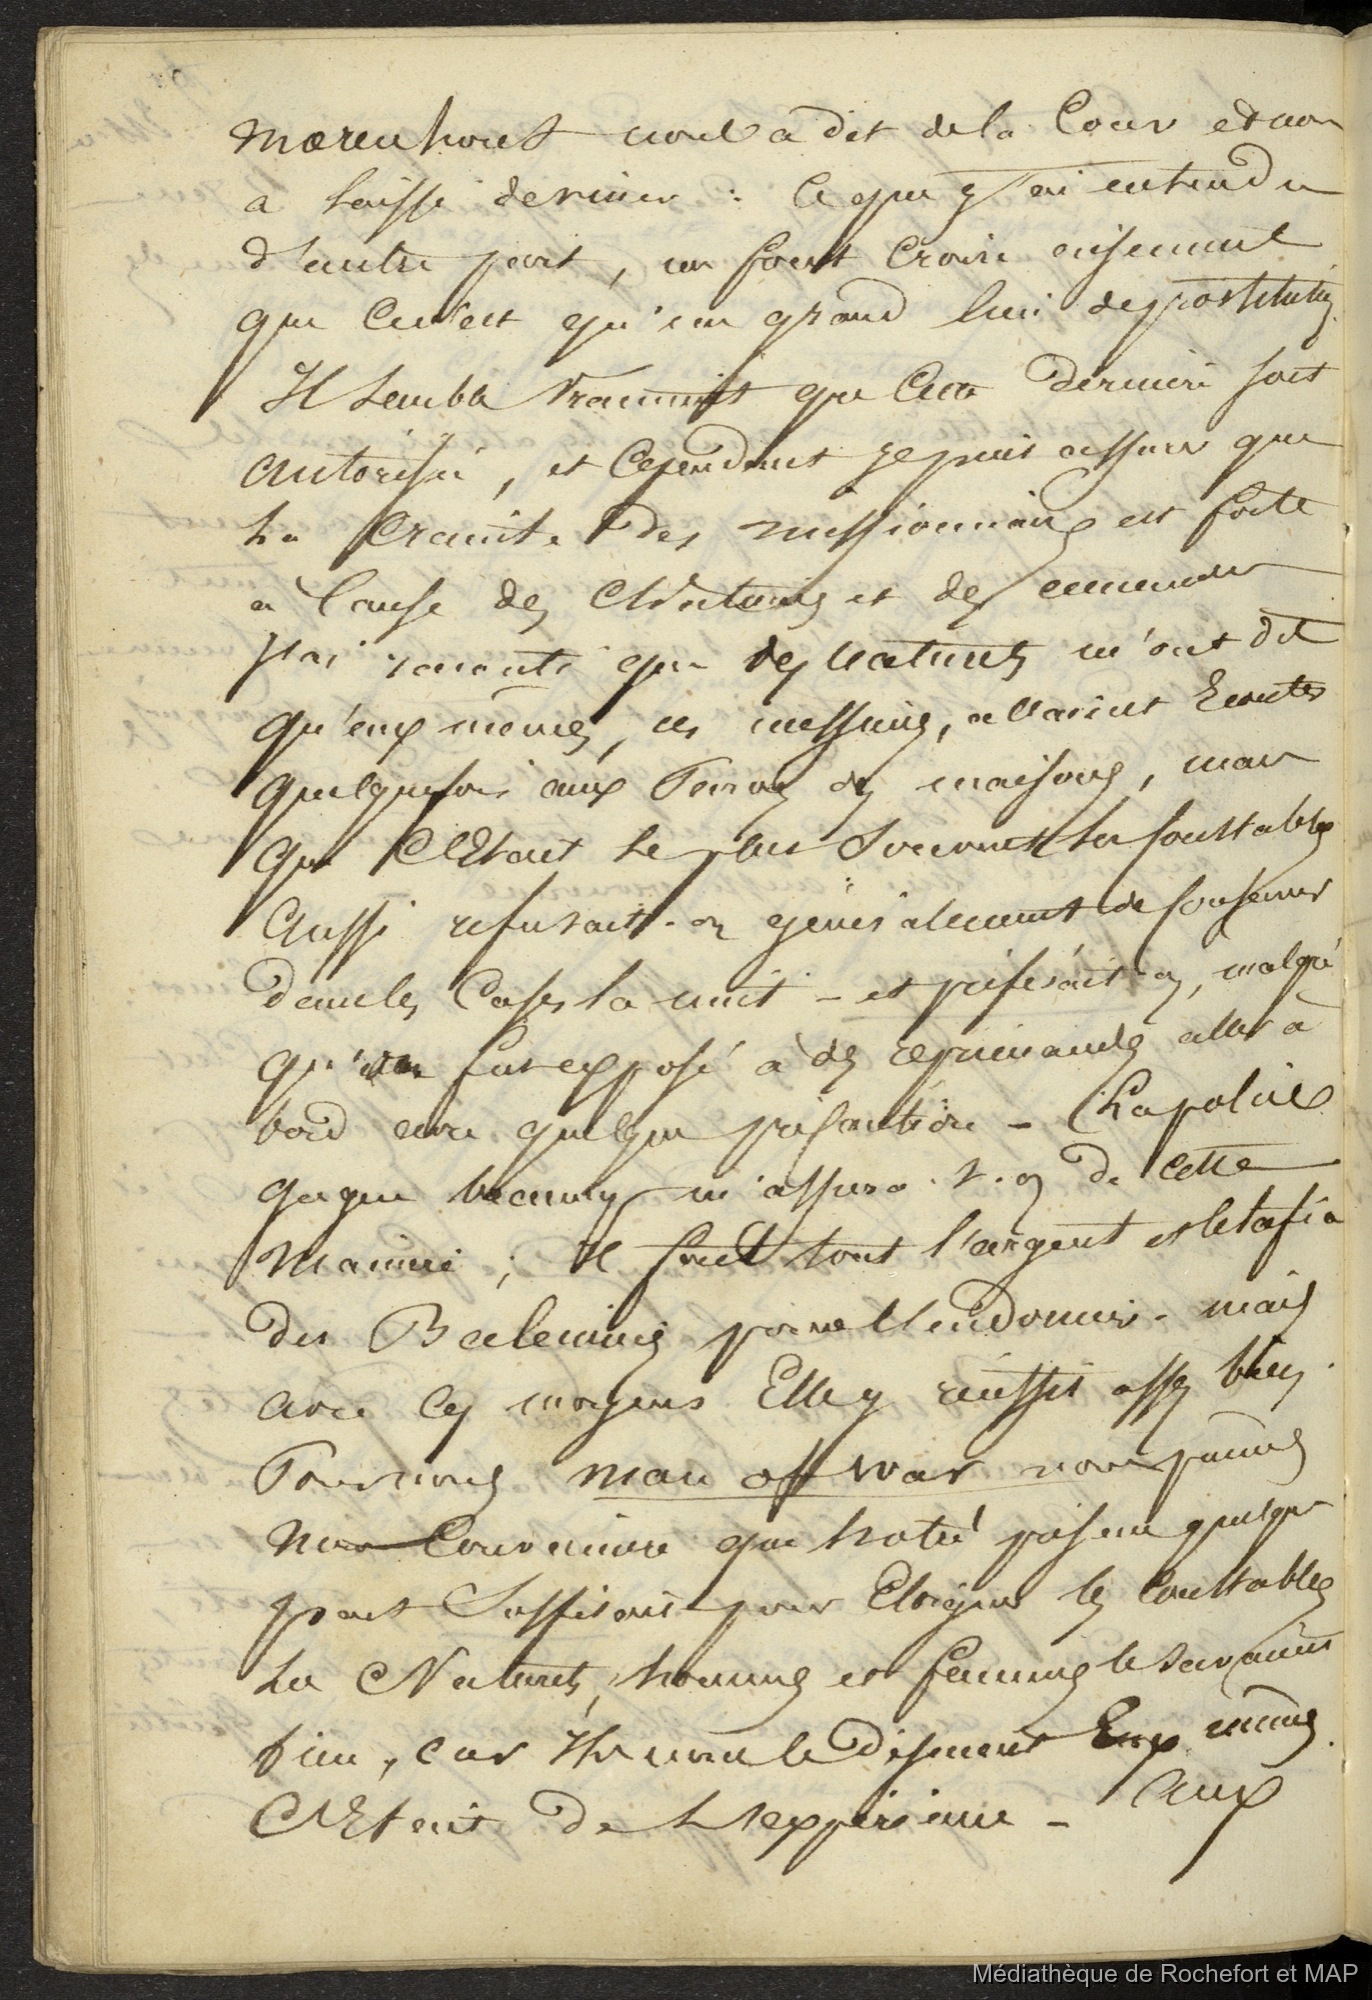 Mœrenhout nous a dit de la Cour et nous
a laissé deviner : Ce que j'ai entendu
d'autre part, me font croire aisément
que Ce n'est qu'un grand lieu de prostitution.
Il semble vraiment que Cette dernière soit
autorisée, et Cependant je puis assurer que
la Crainte des missionnaires est forte
à Cause des Châtimens et des amendes
J'ai raconté que des naturels m'ont dit
qu'eux mêmes, ces messieurs, allaient Ecouter
quelquefois aux Parois des maisons, mais
que C'Etait le plus souvent les Constables
Aussi refusait-on généralement de Conserver
dans les Cases la nuit - et préférait-on, malgré
qu'on fut exposé à des réprimandes aller à
bord avec quelque précaution - La police
gagne beaucoup m'assura-t-on de cette
Manière ; Il faut tout l'argent et le tafia
des Baleiniers pour l'Endormir - mais
avec Ces moyens Elle y réussit assez bien.
Pour nous man off war nous pûmes
nous Convaincre que notre présence quelque
part Suffisait pour Eloigner les Constables
Les Naturels, hommes et femmes le savaient
bien, car Ils nous le disaient Eux mêmes.
C'Etait de L'expérience - Aux
Médiathèque de Rochefort et MAP